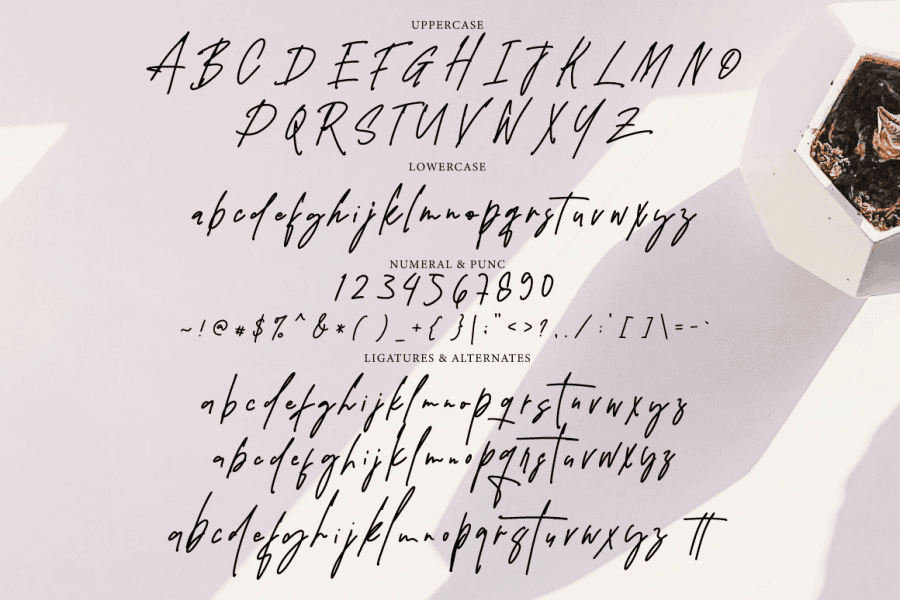 UPPERCASE
A B C D E F G H I J K L M N O
P Q R S T U V W X Y Z
LOWERCASE
a b c d e f g h i j k l m n o p q r s t u v w x y z
NUMERAL & PUNC
1 2 3 4 5 6 7 8 9 0
~ ! @ * $ % ^ & * ( ) _ + { } | ; " < > ? , . / : ' [ ] \ = - `
LIGATURES & ALTERNATES
a b c d e f g h i j k l m n o p q r s t u v w x y z
a b c d e f g h i j k l m n o p q r s t u v w x y z
a b c d e f g h i j k l m n o p q r s t u v w x y z tt